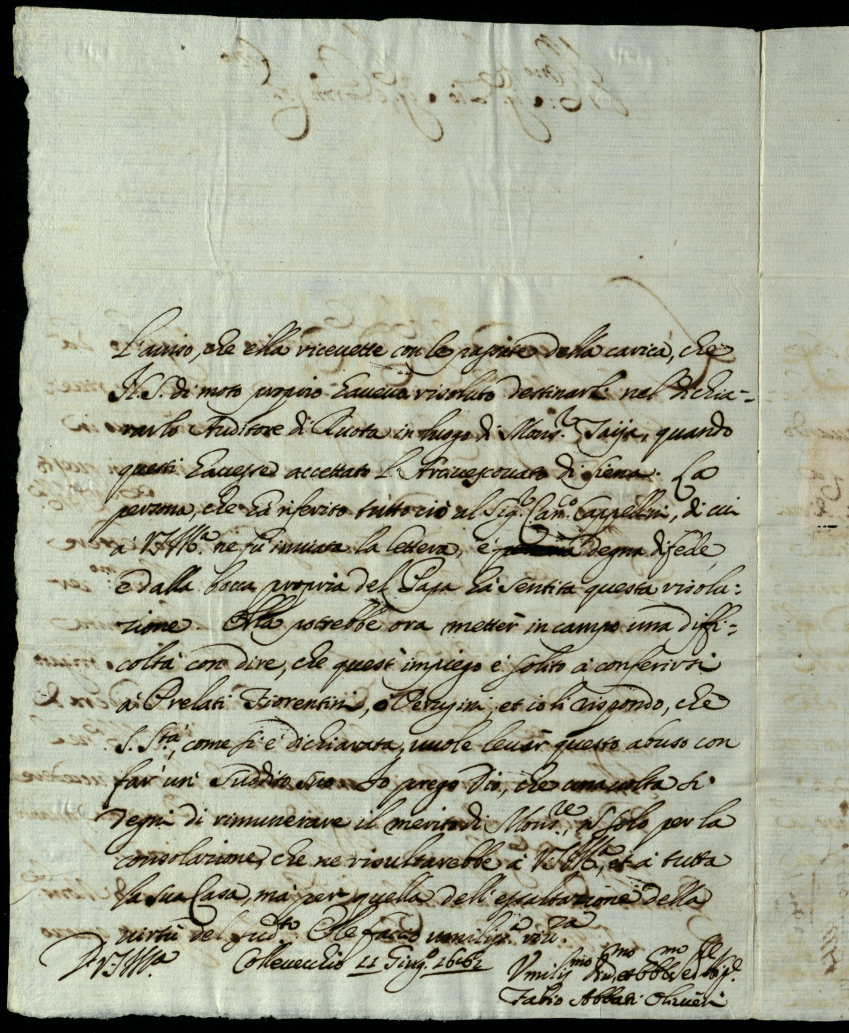 L'auviso, che ella riceuette con le passate della carica, che
N. S. di moto proprio haueua risoluto destinarle nel dichia-
rarlo Auditore di Ruota in luogo di Mons.r Taija, quando
questi hauesse accettato l'Arciuescouato di Siena. La
persona, che hà riferito tutto ciò al Sig.r Can.co Cappellini, di cui
à V.S. Ill.ma ne fù inuiata la lettera, è degna di fede,
e dalla bocca propria del Papa hà sentita questa risolu-
zione. Ella potrebbe ora metter in campo una diffi-
coltà con dire, che quest'impiego è solito à conferirsi
à Prelati Fiorentini, ò Perugini, et io li rispondo, che
S. S.tà, come si è dichiarata, uuole leuar questo abuso con
far un suddito suo. Io prego Dio, che una uolta si
degni di rimunerare il merito di Mons.re, nō solo per la
consolazione, che ne risultarebbe à V.S. Ill.ma, et à tutta
la sua Casa, mà per quella dell'esultazione della
uirtù del sud.to. E le faccio umiliss.a riu.za
D. V.S. Ill.ma Colleuecchio 11 Giug.o 1662
Umiliss.mo Diu.mo et Obb.mo Se.re
Fabio Abbati Oliuieri